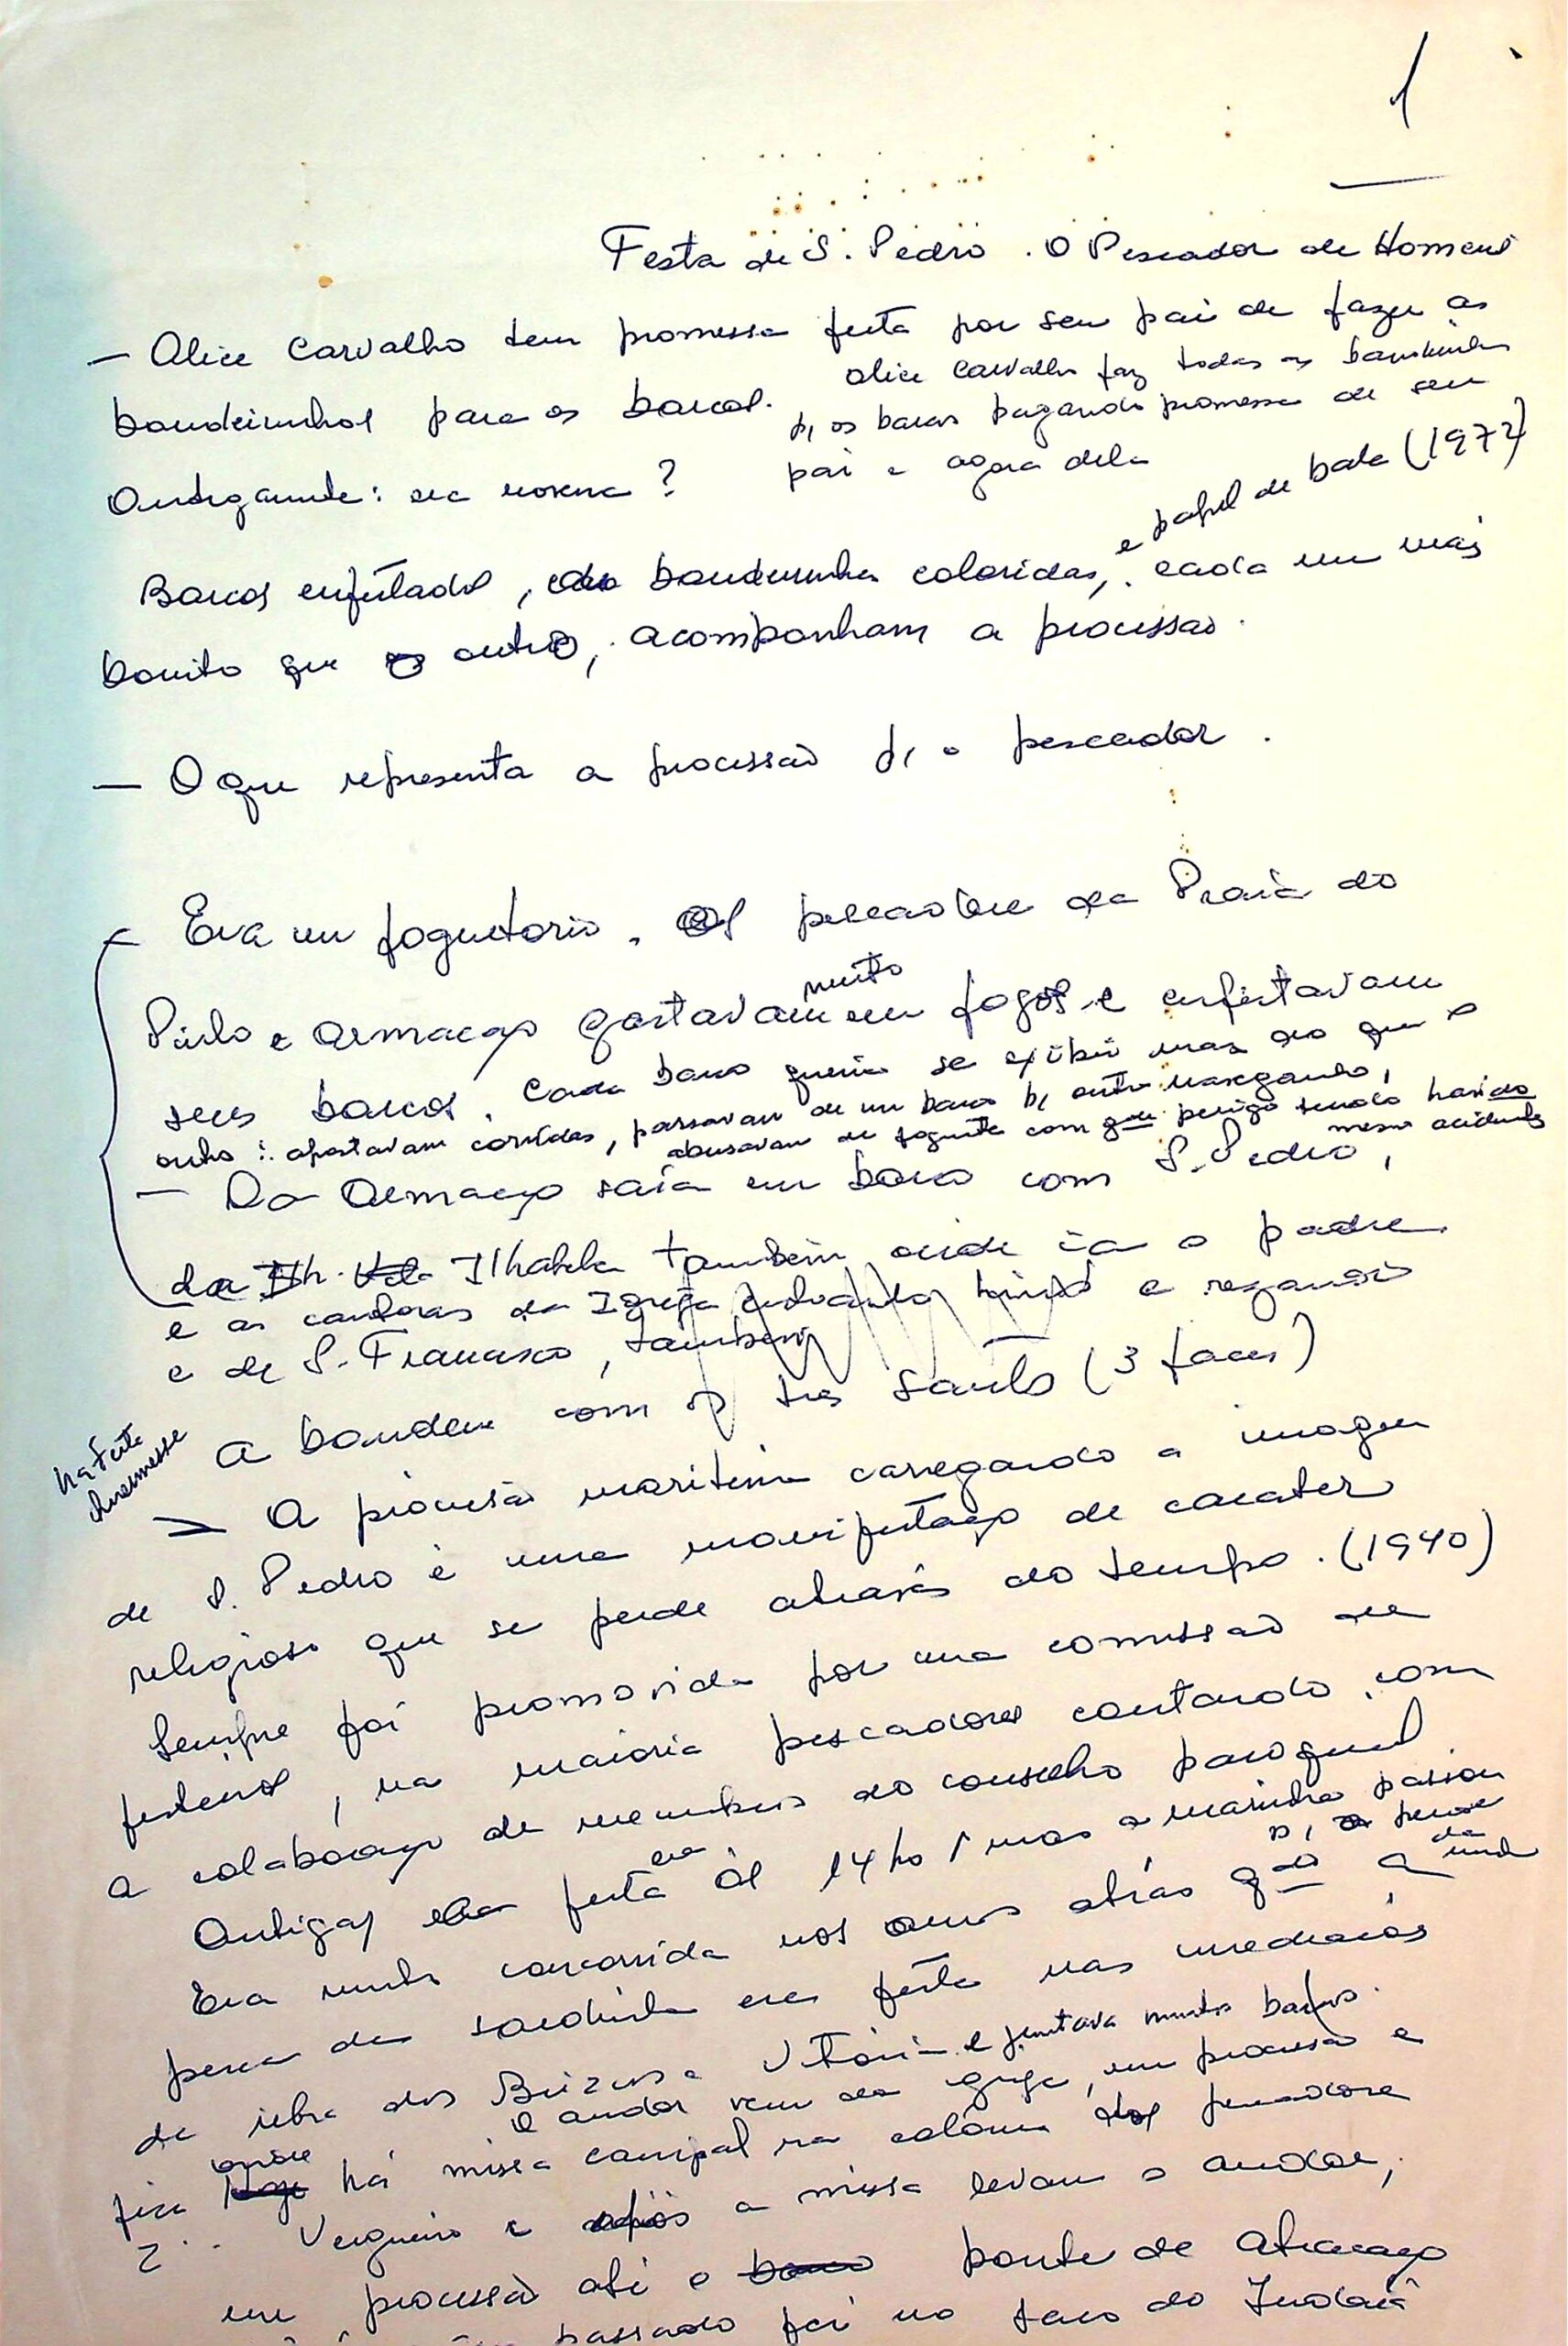 1
Festa de S. Pedro. O Pescador de Homens
— Alice Carvalho tem promessa feita por seu pai de fazer as
bandeirinhas para os barcos.
Alice Carvalho faz todas as bandeirinhas
p/ os barcos pagando promessa de seu
pai e agora dela
Antigamente: era novena?
e papel de bala (1972)
Barcos enfeitados, bandeirinhas coloridas, cada um mais
bonito que outro, acompanham a processão.
— O que representa a processão p/ o pescador.
— Era um foguetorio. Os pescadores da Praia do
muito
Pinto e Armação gastavam em fogos e enfeitavam
seus barcos. Cada barco queria se exibir mais do que o
outro: apostavam corridas, passavam de um barco p/ outro navegando,
abusavam de foguete com gde perigo tendo havido
mesmo acidentes
— Da Armação saía um barco com S. Pedro,
da Ilhabela tambem onde ia o padre
e as cantoras da Igreja entoando hinos e rezando
e de S. Francisco, tambem
a bandeira com os tres Santos (3 faces)
na festa
quermesse
— A processão maritima carregando a imagem
de S. Pedro é uma manifestação de carater
religioso que se perde através do tempo. (1940)
Sempre foi promovida por uma comissão de
festeiros, na maioria pescadores contando com
a colaboração de membros do conselho paroquial
Antigas festa era às 14 hs / mas a marinha passou
Era muito concorrida nos anos atrás qdo a
pesca da sardinha era feita nas imediações
da ilha dos Búzios e Vitória e juntava muitos barcos.
O andor vem da igreja, em processão e
fica onde há missa campal na colônia dos pescadores
Vergueiro e após a missa levam o andor,
em processão até o ponte de atracação
passado foi no saco do Indaiá